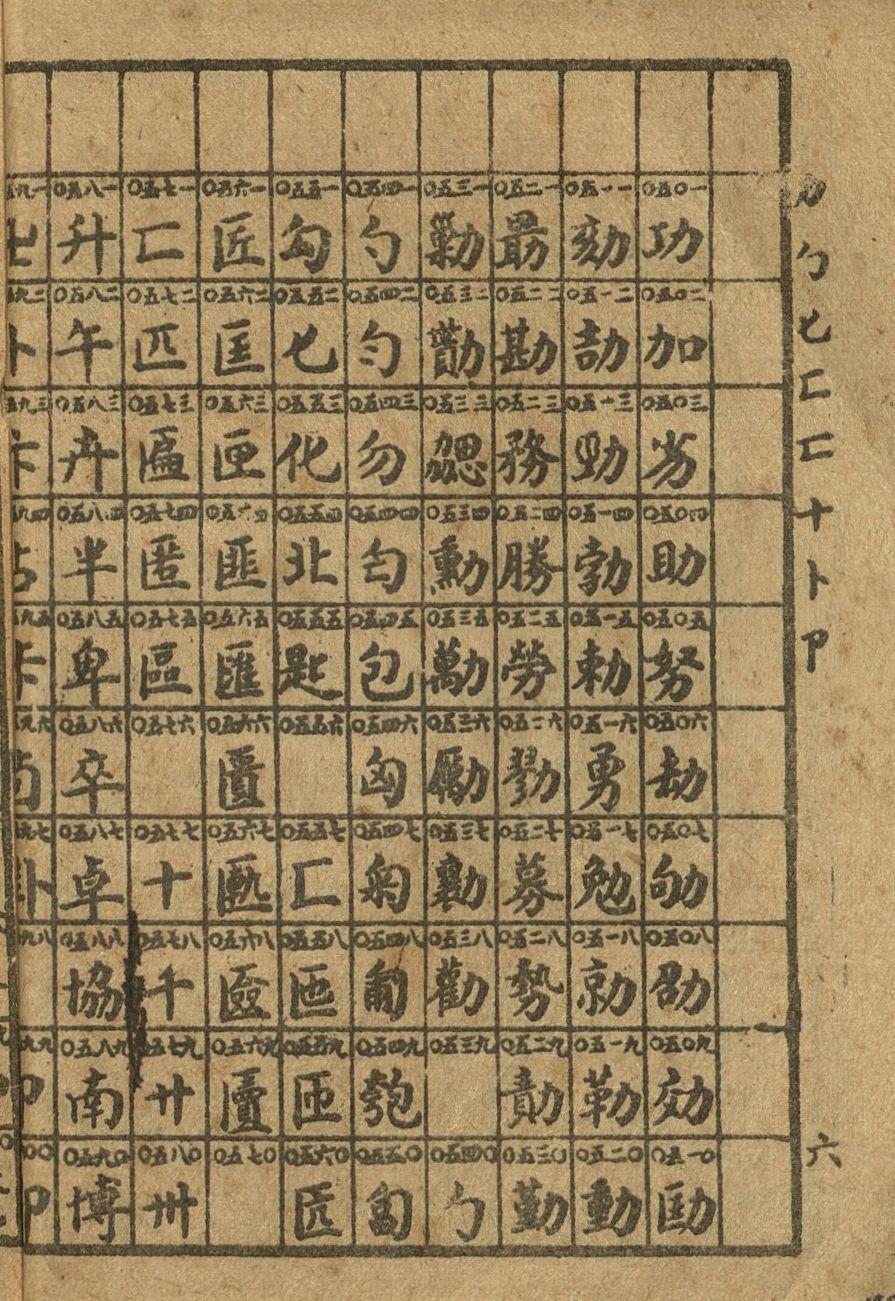 力勹匕匚匸十卜卩
六
〇五〇一 功
〇五〇二 加
〇五〇三 劣
〇五〇四 助
〇五〇五 努
〇五〇六 劫
〇五〇七 劬
〇五〇八 劭
〇五〇九 効
〇五一〇 劻
〇五一一 劾
〇五一二 劼
〇五一三 勁
〇五一四 勃
〇五一五 勅
〇五一六 勇
〇五一七 勉
〇五一八 勍
〇五一九 勒
〇五二〇 動
〇五二一 勗
〇五二二 勘
〇五二三 務
〇五二四 勝
〇五二五 勞
〇五二六 勠
〇五二七 募
〇五二八 勢
〇五二九 勣
〇五三〇 勤
〇五三一 勦
〇五三二
〇五三三 勰
〇五三四 勳
〇五三五 勱
〇五三六 勵
〇五三七 勷
〇五三八 勸
〇五三九
〇五四〇 勹
〇五四一 勺
〇五四二 勻
〇五四三 勿
〇五四四
〇五四五 包
〇五四六 匈
〇五四七 匊
〇五四八 匍
〇五四九 匏
〇五五〇 匐
〇五五一
〇五五二 匕
〇五五三 化
〇五五四 北
〇五五五 匙
〇五五六
〇五五七 匚
〇五五八 匜
〇五五九 匝
〇五六〇
〇五六一 匠
〇五六二 匡
〇五六三 匣
〇五六四 匪
〇五六五 匯
〇五六六 匱
〇五六七 匭
〇五六八 匳
〇五六九 匵
〇五七〇
〇五七一 匸
〇五七二 匹
〇五七三 匾
〇五七四 匿
〇五七五 區
〇五七六
〇五七七 十
〇五七八 千
〇五七九 廿
〇五八〇 卅
〇五八一 升
〇五八二 午
〇五八三 卉
〇五八四 半
〇五八五 卑
〇五八六 卒
〇五八七 卓
〇五八八 協
〇五八九 南
〇五九〇 博